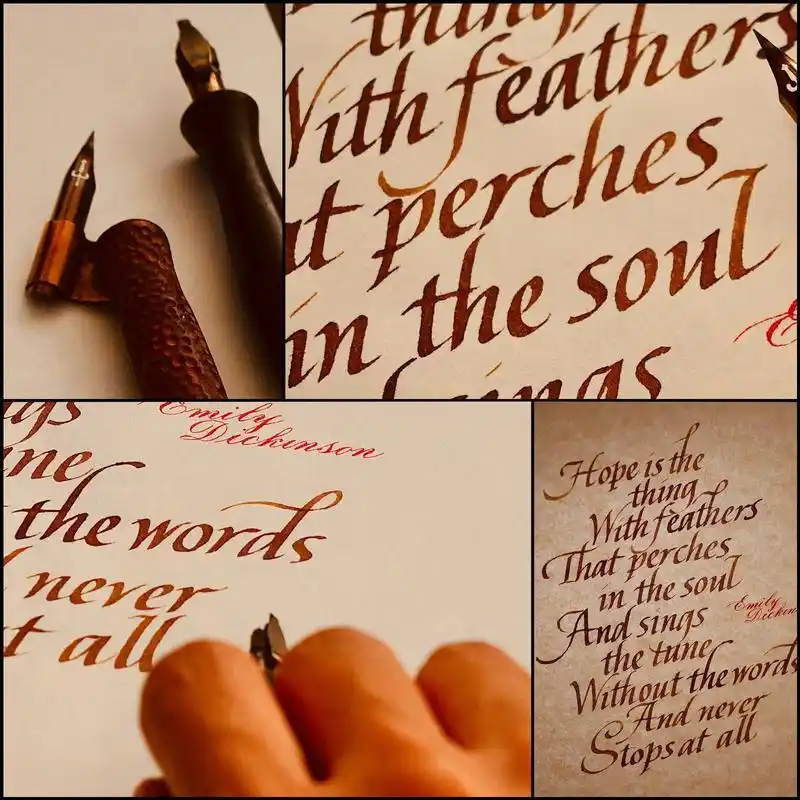 thing
With feathers
at perches
in the soul
sings
Emily
Dickinson
ngs
une
the words
never
t all
Hope is the
thing
With feathers
That perches
in the soul
Emily
Dickin
And sings
the tune
Without the words
And never
Stops at all